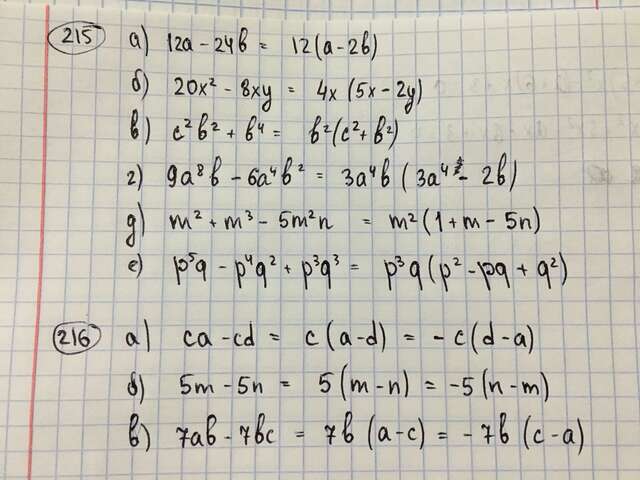 215 а) 12a - 24b = 12(a - 2b)
б) 20x² - 8xy = 4x (5x - 2y)
в) c²b² + b⁴ = b²(c² + b²)
г) 9a⁸b - 6a⁴b² = 3a⁴b (3a⁴ - 2b)
д) m² + m³ - 5m²n = m² (1 + m - 5n)
е) p⁵q - p⁴q² + p³q³ = p³q (p² - pq + q²)
216 а) ca - cd = c (a - d) = - c (d - a)
б) 5m - 5n = 5 (m - n) = -5 (n - m)
в) 7ab - 7bc = 7b (a - c) = - 7b (c - a)